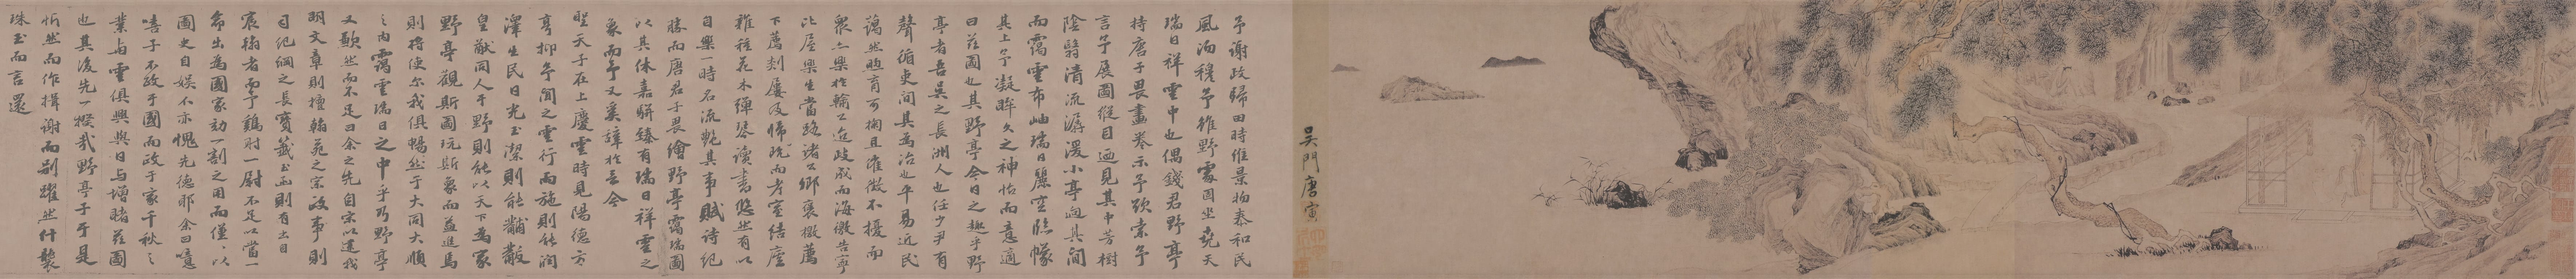 吳門唐寅
予謝政歸田時維景物泰和民
風洵穆予雖野處固坐堯天
瑞日祥雲中也偶錢君野亭
持唐子畏畫卷示予跋索予
言予展圖縱目迺見其中芳樹
陰翳清流潺湲小亭迥其間
而靄雲布岫瑞日麗空臨幪
其上予凝眸久之神怡而意適
曰茲圖也其野亭今日之趣乎野
亭者吾吳之長洲人也任少尹有
聲循吏間其為治也平易近民
藹然煦育可掬且潅傲不擾而
眾亦樂於輸工迨歧成而海徼告寧
比屋樂生當路諸公鄉褒檄薦
下薦剡屢及歸既而考室結廬
雜種花木彈琴讀書悠然有以
自樂一時名流艷其事賦詩紀
勝而唐君子畏繪野亭靄瑞圖
以其休嘉駢臻有瑞日祥雲之
象而予又奚辭於言今
聖天子在上慶雲時見陽德方
亨抑予聞之雲行雨施則能潤
澤生民日光玉潔則能黼黻
皇猷同人于野則能以天下為家
野亭觀斯圖玩斯象而益進焉
則將使尔我俱暢然于大同大順
之內靄雲瑞日之中乎乃野亭
又歉然而不足曰余之先自宗以遠我
明文章則擅翰苑之宗政事則
司紀綱之長寶籤玉函則有出日
宸翰者而予鷄肘一尉不足以當一
命出為國家効一割之用而僅僅以
圖史自娛不亦愧先德耶余曰噫
嘻子不政于國而政于家千秋之
業當與雲俱興與日与增睹茲圖
也其後先一揆哉野亭子于是
忻然而作揖謝而別躍然什襲
珠玉而言還